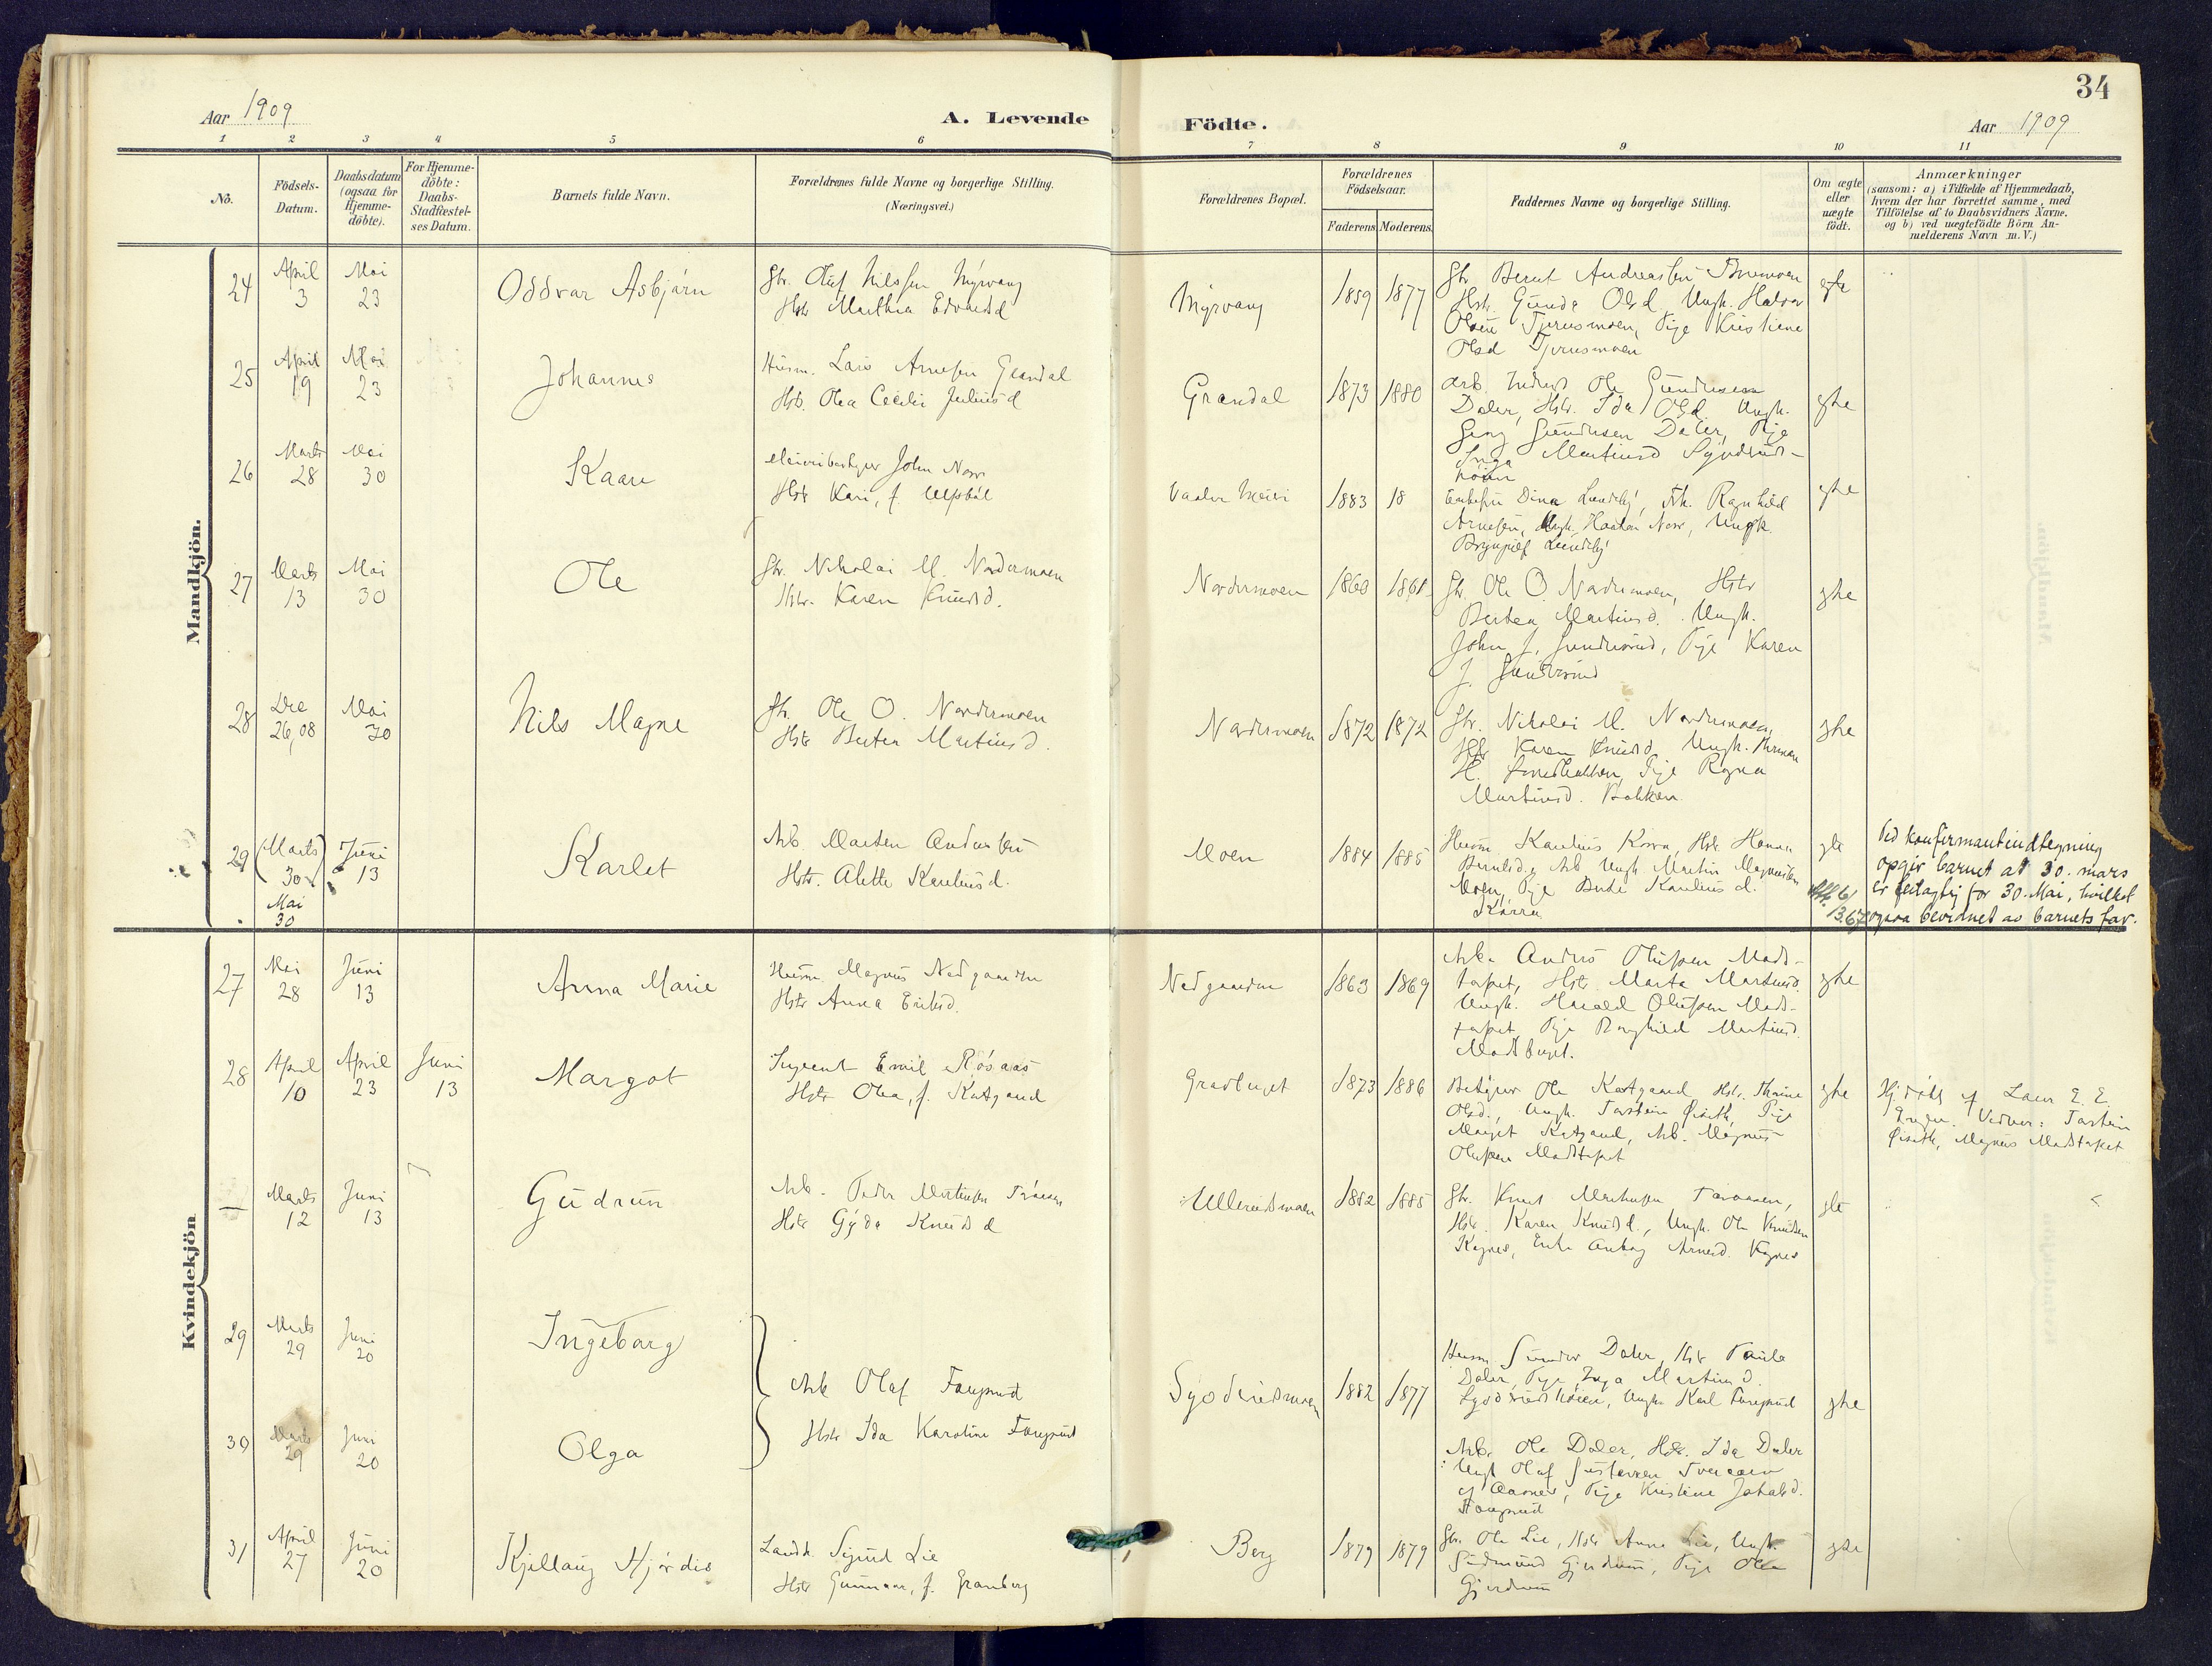 34
Aar 1909
A. Levende
Födte.
Aar 1909
1 2 3 4 5 6 7 8 9 10 11
No.
Födsels-
Datum.
Daabsdatum
(ogsaa for
Hjemme-
döbte).
For Hjemme-
döbte:
Daabs-
Stadfæstel-
ses Datum.
Barnets fulde Navn.
Forældrenes fulde Navne og borgerlige Stilling.
(Næringsvei.)
Forældrenes Bopæl.
Forældrenes
Födselsaar.
Faderens Moderens
Faddernes Navne og borgerlige Stilling.
Om ægte
eller
uægte
födt.
Anmærkninger
(saasom: a) i Tilfælde af Hjemmedaab,
hvem der har forrettet samme, med
Tilföielse af to Daabsvidners Navne.
og b) ved uægtefödte Börn An-
melderens Navn m. V.)
Mandkjön.
24
April
3
Mai
23
Oddvar Asbjørn
Gbr. Oluf Nilssen Myrvang
Hstr Marthea Edvardsd
Myrvang
1859 1877
Gbr Bernt Andreassen
Hstr. Gunda Olsd, Ungk. Halvor
Olsen Tjernsmoen, Pige Kristiane
Olsd Tjernsmoen
egte
25
April
19
Mai
23
Johannes
Husm. Lars Arnesen Grandal
Hstr. Olea Cecilie Juliusd
Grandal
1873 1880
Arb. Ole Gundersen
Daler, Hstr. Ida Olsd, Ungk.
Georg Gundersen Daler, Pige
Inga Martinsd
egte
26
Marts
28
Mai
30
Kaare
Meieribestyrer John Nær
Hstr Kari, f.
Vaaler Meieri
1883 18
Dina Lundby, Frk. Ragnhild
Arnesen, Ungk. Haakon Nær, Ungk.
Brynjulf Lundby
egte
27
Marts
13
Mai
30
Ole
Gbr. Nikolai M. Nordermoen
Hstr. Karen Knudsd.
Nordermoen
1860 1861
Gbr. Ole O. Nordermoen, Hstr
Bertea Martinsd. Ungk.
John J. Gundersrud, Pige Karen
J. Gundersrud
egte
28
Dec
26, 08
Mai
30
Nils Magne
Gbr. Ole O. Nordermoen
Hstr Bertea Martinsd.
Nordermoen
1872 1872
Gbr. Nikolai M. Nordermoen,
Hstr Karen Knudsd, Ungk.
H. Smedbakken, Pige Ragna
Martinsd. Bakken
egte
29
(Marts)
30
Mai
30
Juni
13
Karlet
Arb. Marten Andersen
Hstr. Alette Kareliusd.
Moen
1884 1885
Husm. Karelius Hstr Hanna
Berntsd, Arb Ungk Martin Magnussen
Moen, Pige Kareliusd.
egte
Ved konfirmantindtegning
opgir barnet at 30. mars
er feilagtig for 30. Mai, hvilket
ogsaa bevidnet av barnets far.
Kvindekjön
27
Mai
28
Juni
13
Anna Marie
Husm Magnus Nedgaarden
Hstr Anna Eriksd.
Nedgaarden
1863 1869
Arb. Anders Olufsen Mads-
torpet, Hstr Marta Martinsd.
Ungk. Harald Olufsen Mads-
torpet, Pige Borghild Martinsd.
Madstorpet.
egte
28
April
10
April
23
Juni
13
Margot
Sergeant Emil Røsaas
Hstr Olea, f. Katgaard
1873 1886
Bestyrer Ole Katgaard, Hstr.
Olsd., Ungk. Torstein Øiseth, Pige
Margit Katgaard, Arb. Magnus
Olufsen Madstorpet
egte
Hj.døbt af Laur E. E.
Vidner: Torstein
Øiseth, Magnus Madstorpet
—
Marts
12
Juni
13
Gudrun
Arb. Peder Mortensen
Hstr Gyda Knudsd
Ullerudsmoen
1882 1885
Gbr. Knut
Hstr. Karen Knudsd., Ungk. Ole Knudsen
Kynes, Enke Arnesd. Kynes
egte
29
Marts
29
Juni
20
Ingeborg
Arb Olaf Faugsrud
Hstr Ida Karoline Faugsrud
1882 1877
Husm Gunder Daler, Hstr Paula
Daler, Pige Inga Martinsd.
Ungk. Karl Faugsrud
egte
30
Marts
29
Juni
20
Olga
Arb. Ole Daler, Hstr. Ida Daler
Ungk Olaf Gustavsen
af Aasnes, Pige Kristine
Faugsrud
31
April
27
Juni
20
Kjellaug Hjørdis
Landh. Sigurd Lie
Hstr Gunnar, f. Granberg
Berg
1879 1879
Gbr. Ole Lie, Hstr Anne Lie, Ungk.
Gudmund Gjerdrum, Pige Olea
Gjerdrum
egte